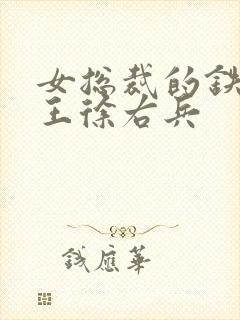 女总裁的铁
王徐右兵
钱应华